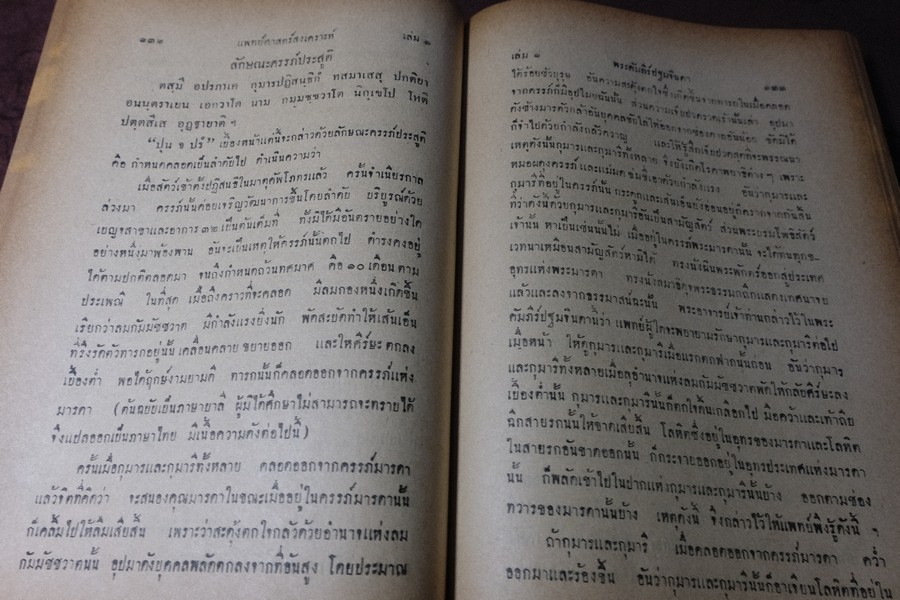 ๑๓๒ แพทย์ศาสตร์สงเคราะห์ เล่ม ๑
ลักษณะครรภ์ประสูติ
ตสฺมึ อปรภาเค กุมารปฏิสนฺธิกํ ทสมาเสสุ ปกติยา
อนนฺตราเยน เอกวาโต นาม กมฺมชฺชวาโต นิกฺเขโป โหติ
ปตฺตสีเส อุฏฺฐายาติ ฯ
“ปุน จ ปรํ” เบื้องหน้าแต่นี้จะกล่าวด้วยลักษณะครรภ์ประสูติ
คือ กำหนดคลอดเป็นลำดับไป ดำเนินความว่า
เมื่อสัตว์เข้าตั้งปฏิสนธิในมาตุคัพโภทรแล้ว ครั้นจำเนียรกาล
ล่วงมา ครรภ์นั้นค่อยเจริญวัฒนาการขึ้นโดยลำดับ บริบูรณ์ด้วย
เบญจสาขาและอาการ ๓๒ เป็นต้นเต็มที่ ทั้งมิได้มีอันตรายอย่างใด
อย่างหนึ่งมาพ้องพาน อันจะเป็นเหตุให้ครรภ์นั้นตกไป ดำรงคงอยู่
ได้ตามปกติตลอดมา จนถึงกำหนดถ้วนทศมาศ คือ ๑๐ เดือน ตาม
ประเพณี ในที่สุด เมื่อถึงคราวที่จะคลอด มีลมกองหนึ่งเกิดขึ้น
เรียกว่าลมกัมมัชชวาต มีกำลังแรงยิ่งนัก พัดสะบัดทำให้เส้นเอ็น
ที่รึงรัดตัวทารกอยู่นั้น เคลื่อนคลาย ขยายออก และให้ศีร์ษะ ตกลง
เบื้องต่ำ พอได้ฤกษ์งามยามดี ทารกนั้นก็คลอดออกจากครรภ์แห่ง
มารดา (ต้นฉบับเป็นภาษาบาลี ผู้มิได้ศึกษาไม่สามารถจะทราบได้
จึงแปลออกเป็นภาษาไทย มีเนื้อความดังต่อไปนี้)
ครั้นเมื่อกุมารและกุมารีทั้งหลาย คลอดออกจากครรภ์มารดา
แล้วจิตที่คิดว่า จะสนองคุณมารดาในขณะเมื่ออยู่ในครรภ์มารดานั้น
ก็เคลิ้มไปให้ลืมเสียสิ้น เพราะว่าสะดุ้งตกใจกลัวด้วยอำนาจแห่งลม
กัมมัชชวาตนั้น อุปมาดังบุคคลพลัดตกลงจากที่อันสูง โดยประมาณ
เล่ม ๑ พระคัมภีร์ปฐมจินดา ๑๓๓
ได้ร้อยชั่วบุรุษ อันความสะดุ้งตกใจซึ่งเกิดขึ้นจากทารกในเมื่อคลอด
จากครรภ์ก็มีอุปไมยฉันนั้น ส่วนความเจ็บปวดรวดเร้านั้นเล่า อุปมา
ดังช้างสารตัวกล้าอันบุคคลขับไสให้ออกจากช่องดาลอันน้อย ขัดมิได้
ก็จำไปด้วยกำลังกลัวควาญ และให้รู้สึกเจ็บปวดสุดที่จะพรรณนา
เหตุดังนั้นกุมารและกุมารีทั้งหลาย จึงบังเกิดโรคาพยาธิต่างๆ เพราะ
หมอผดุงครรภ์ และแม่มด ข่มขี่เอาด้วยกำลังแรง อันว่ากุมารและ
กุมารีที่อยู่ในครรภ์นั้น กระดูกและเส้นเอ็นยังอ่อนอยู่ก็คราดจากกันสิ้น
ที่ว่าดังนี้ด้วยกุมารและกุมารีอันเป็นสามัญสัตว์ ส่วนพระบรมโพธิสัตว์
เจ้านั้น หาเป็นเช่นนั้นไม่ เมื่ออยู่ในครรภ์พระมารดานั้น จะได้ทนทุกข-
เวทนาเหมือนสามัญสัตว์หามิได้ ทรงนั่งผินพระพักตร์ออกสู่ประเทศ
อุทรแห่งพระมารดา ทรงนั่งสมาธิดุจพระธรรมกถึกแสดงเทศนาจบ
แล้วและลงจากธรรมาสน์ฉะนั้น พระอาจารย์เจ้าท่านกล่าวไว้ในพระ
คัมภีร์ปฐมจินดานี้ว่า แพทย์ผู้ใดจะพยายามรักษากุมารและกุมารีต่อไป
เมื่อหน้า ให้ดูกุมารและกุมารีเมื่อแรกตกฟากนั้นก่อน อันว่ากุมาร
และกุมารีทั้งหลายเมื่อลุอำนาจแห่งลมกัมมัชชวาตพัดให้กลับศีร์ษะลง
เบื้องต่ำนั้น กุมารและกุมารีนั้นก็ตกใจดิ้นเกลือกไป มือคว้าและเท้าถีบ
ฉีกสายรกนั้นให้ขาดเสียสิ้น โลหิตซึ่งอยู่ในอุทรของมารดาและโลหิต
ในสายรกอันขาดออกนั้น ก็กระจายออกอยู่ในอุทรประเทศแห่งมารดา
นั้น ก็พลัดเข้าไปในปากแห่งกุมารและกุมารีนั้นบ้าง ออกตามช่อง
ทวารของมารดานั้นบ้าง เหตุดังนี้ จึงกล่าวไว้ให้แพทย์พึงรู้ดังนี้ ฯ
ถ้ากุมารและกุมารี เมื่อคลอดออกจากครรภ์มารดา คว่ำ
ออกมาและร้องขึ้น อันว่ากุมารและกุมารีนั้นก็อาเจียนโลหิตที่อยู่ใน